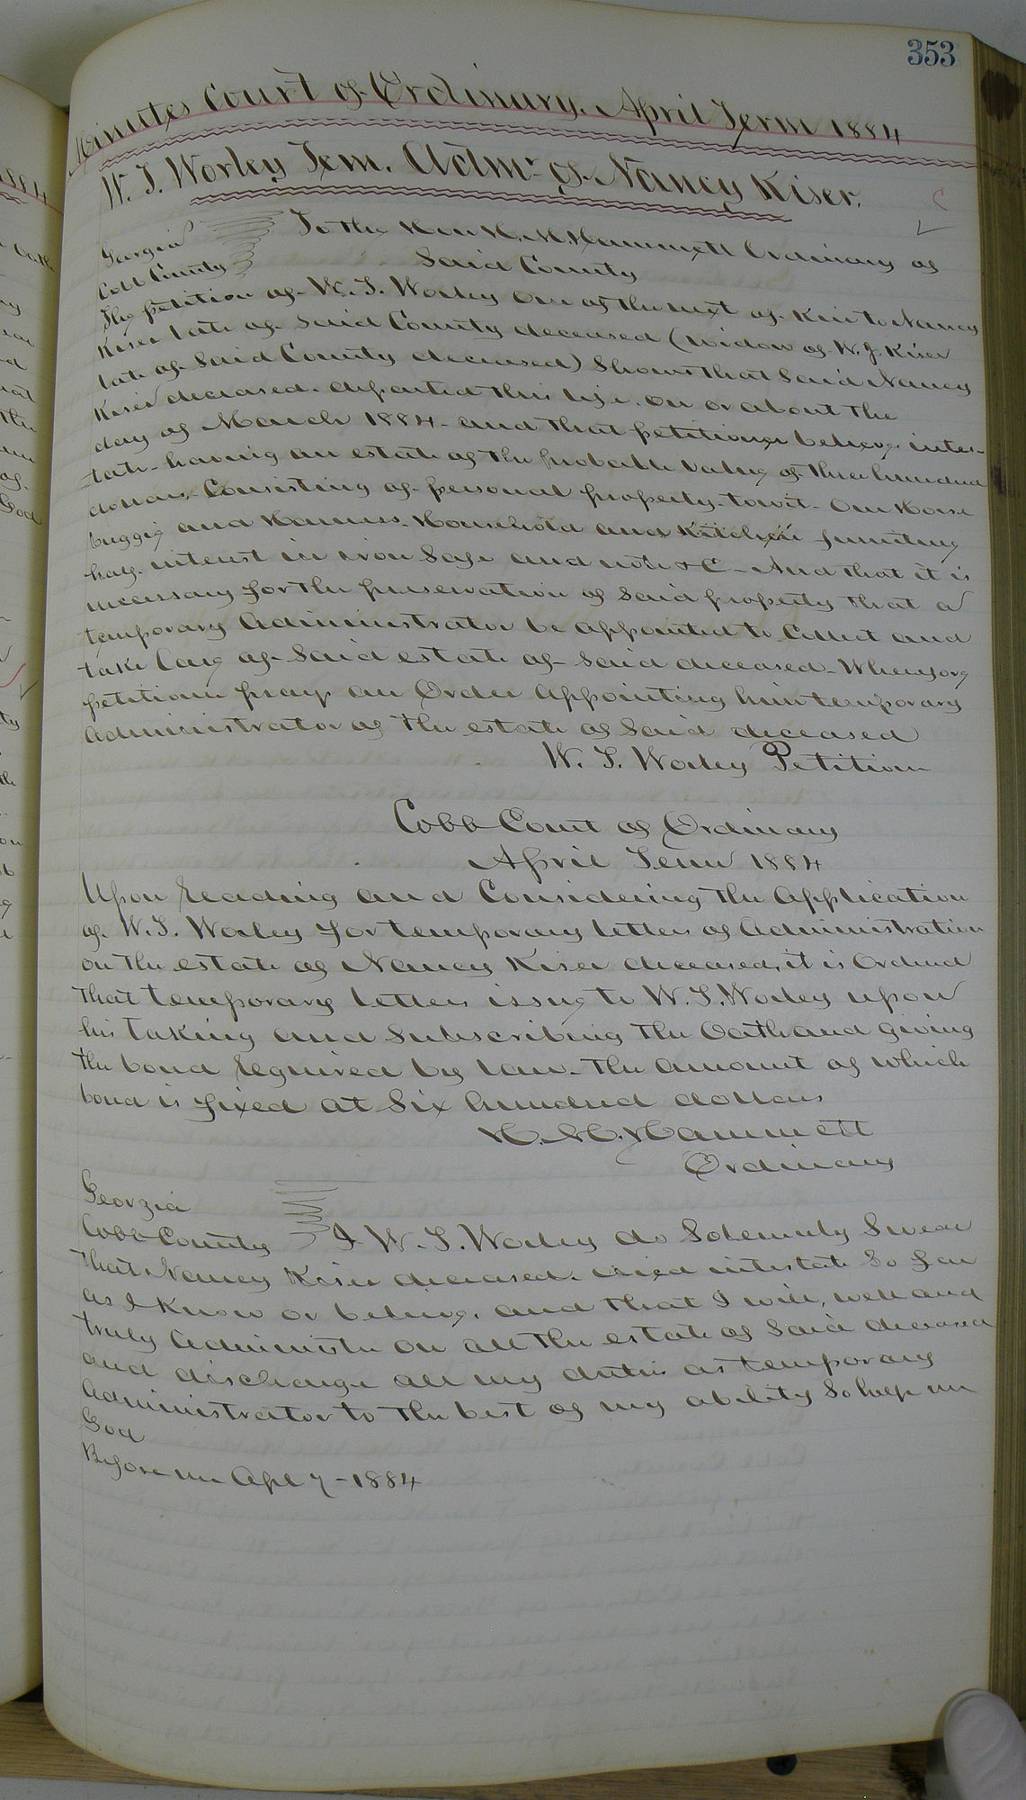 353
Minutes Court of Ordinary. April Term 1884
W. J. Worley Tem. Adm.r of Nancy Kiser.
Georgia To the Hon H. M. Hammett Ordinary of
Cobb County Said County
The petition of W. J. Worley One of the next of Kin to Nancy
Kiser late of Said County deceased (widow of W. J. Kiser
late of Said County deceased) Shows that Said Nancy
Kiser deceased. departed this life. on or about the
day of March 1884 - and that petitioner believes intes-
tate - having an estate of the probable value of three hundred
dollars. Consisting of personal property towit. One Horse
buggy and Harness. Household and Kitchen furniture
half interest in iron Safe and note &C - And that it is
necessary for the preservation of Said property that a
temporary Administrator be appointed to Collect and
take Care of Said estate of Said deceased - Wherefore
petitioner prays an Order Appointing him temporary
Administrator of the estate of Said deceased
W. J. Worley Petition
Cobb Court of Ordinary
April Term 1884
Upon reading and Considering the Application
of W. J. Worley for temporary letters of Administration
on the estate of Nancy Kiser deceased, it is Ordered
that temporary letters issue to W. J. Worley upon
his taking and Subscribing the Oath and giving
the bond required by law - The Amount of which
bond is fixed at Six hundred dollars
H. M. Hammett
Ordinary
Georgia
Cobb County I W. J. Worley do Solemnly Swear
that Nancy Kiser deceased. died intestate So far
as I Know or believe, and that I will, well and
truly Administer on all the estate of Said deceased
and discharge all my duties as temporary
Administrator to the best of my ability So help me
God
Before me Apl 7 - 1884